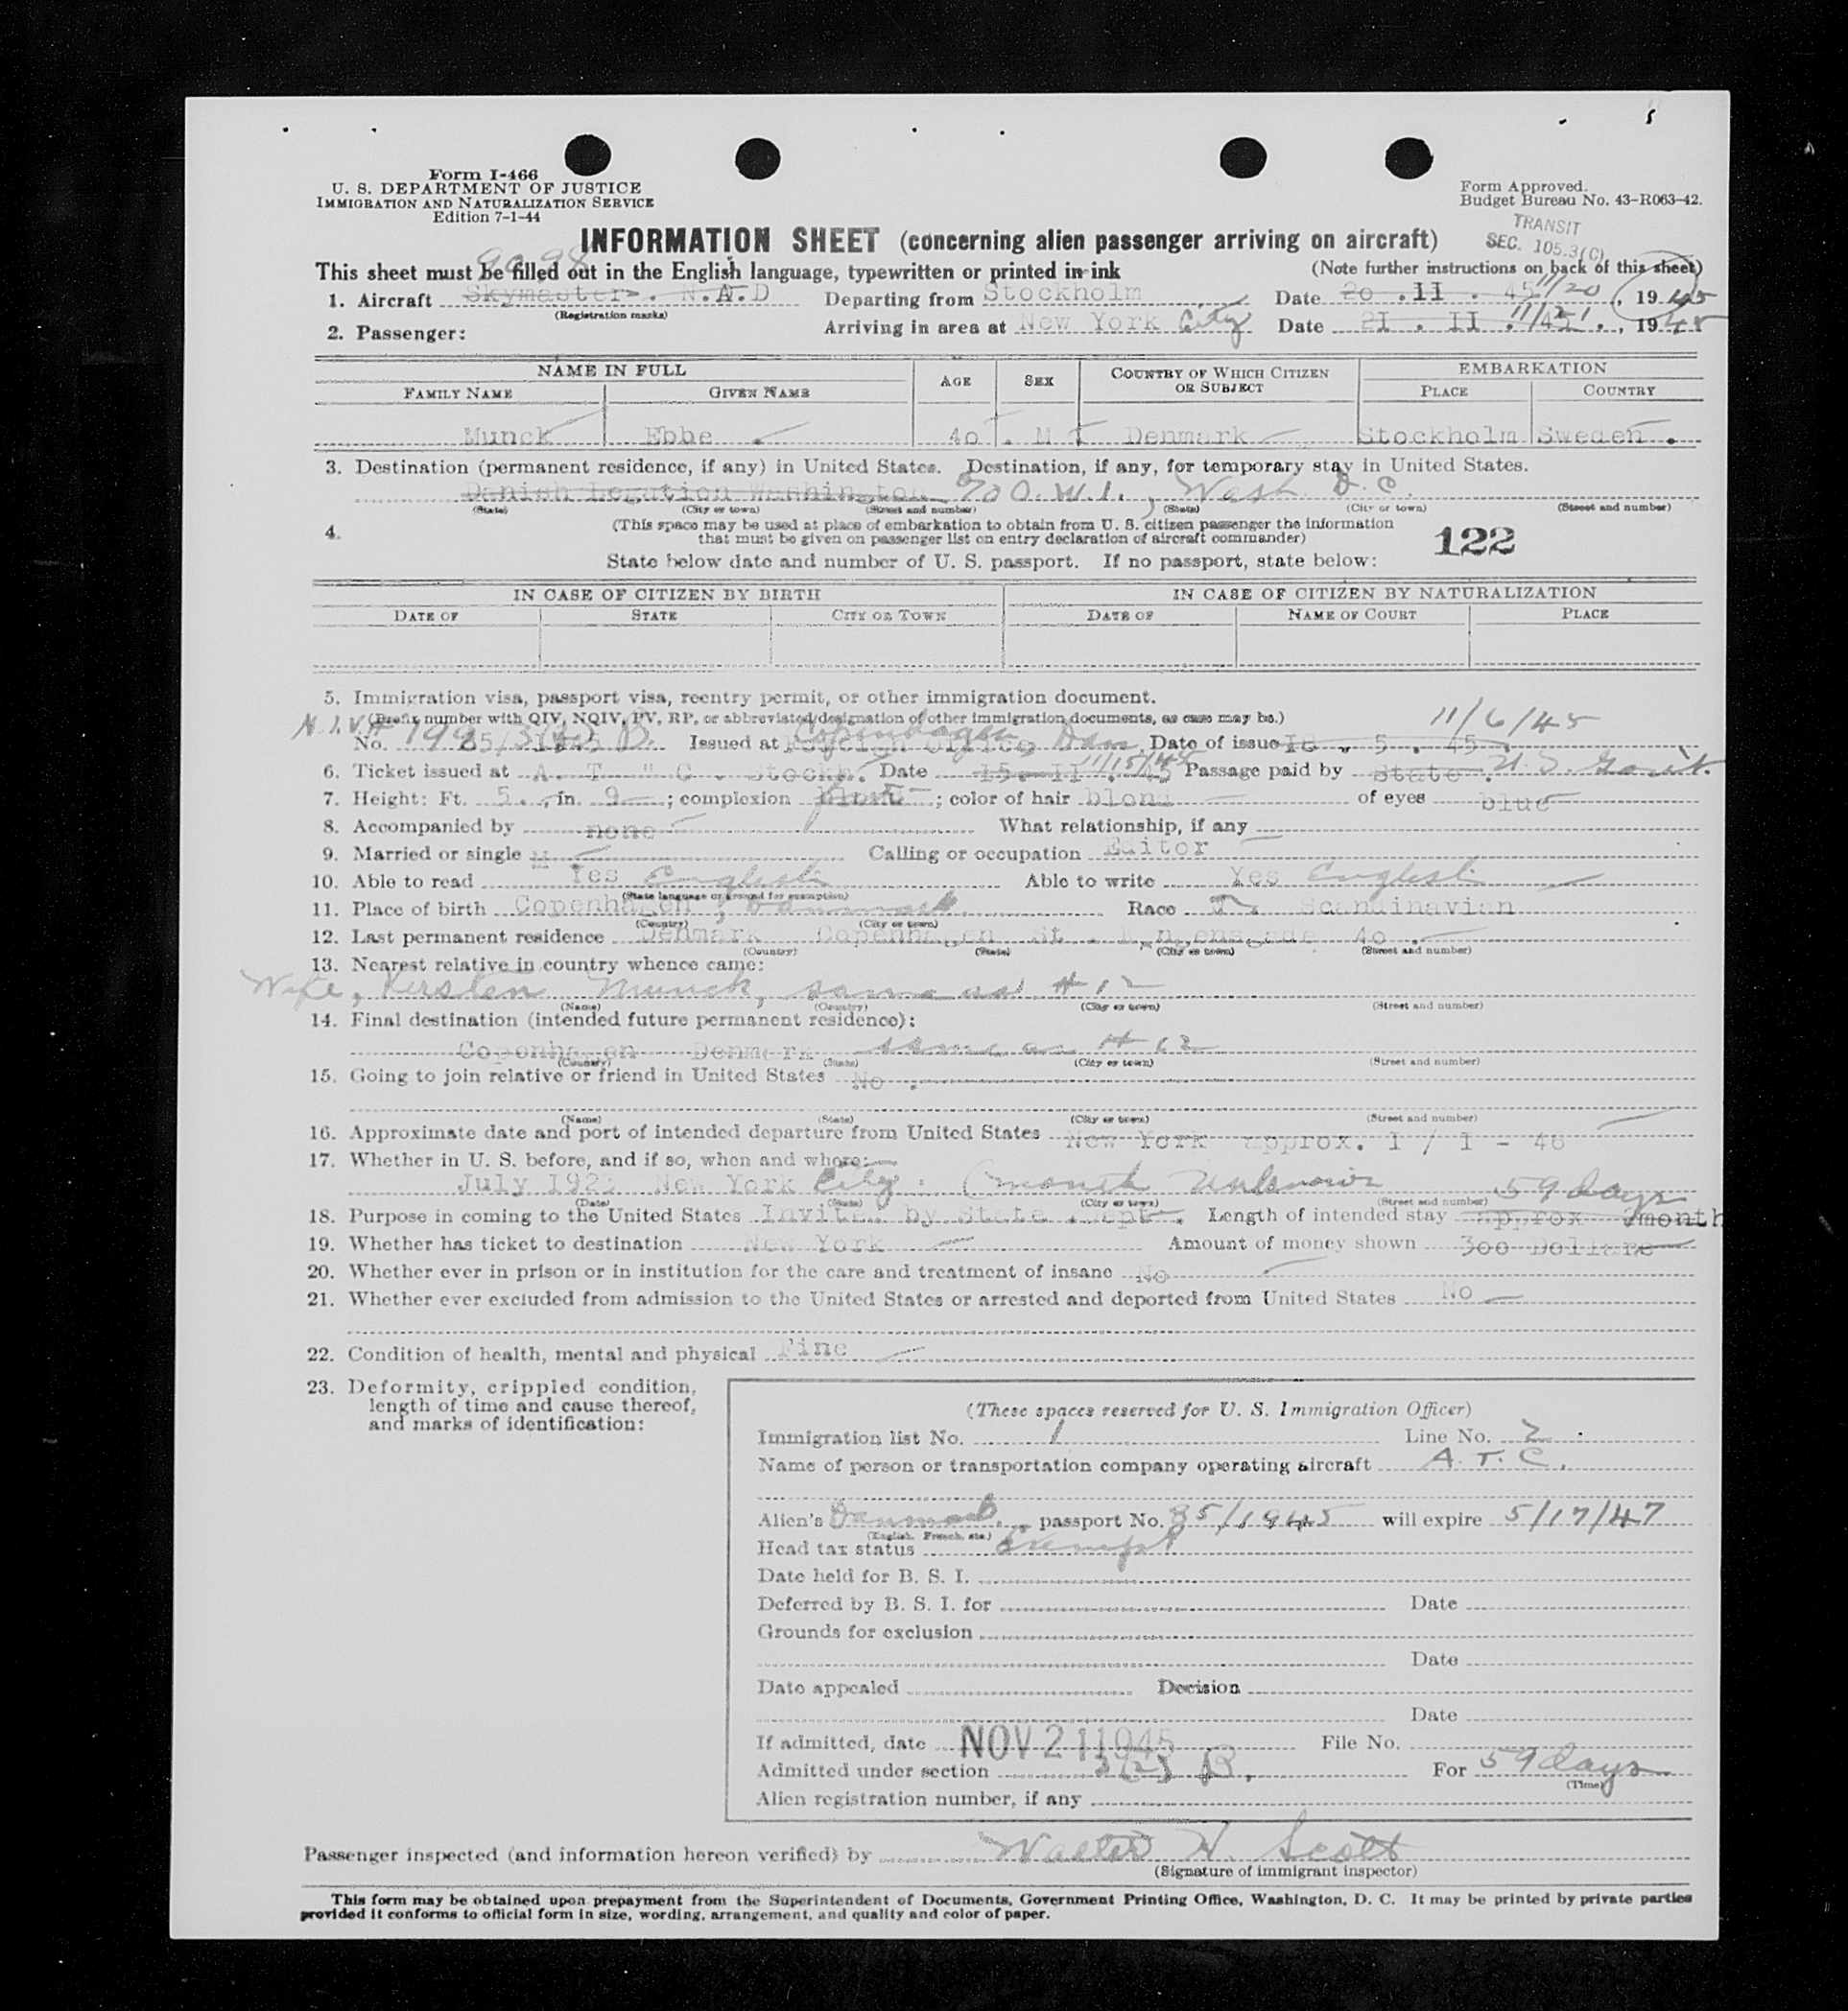 Form I-466
U. S. DEPARTMENT OF JUSTICE
IMMIGRATION AND NATURALIZATION SERVICE
Edition 7-1-44
Form Approved.
Budget Bureau No. 43-R063-42.
TRANSIT
SEC. 105.3(C)
INFORMATION SHEET (concerning alien passenger arriving on aircraft)
9098
This sheet must be filled out in the English language, typewritten or printed in ink
(Note further instructions on back of this sheet)
1. Aircraft Skymaster. N.A.D Departing from Stockholm Date 20 . II . 45 11/20, 1945
(Registration marks)
2. Passenger: Arriving in area at New York City Date 21 . II . 45 11/21, 1945
NAME IN FULL AGE SEX COUNTRY OF WHICH CITIZEN OR SUBJECT EMBARKATION
FAMILY NAME GIVEN NAME PLACE COUNTRY
Munck Ebbe 40 . M Denmark Stockholm Sweden .
3. Destination (permanent residence, if any) in United States. Destination, if any, for temporary stay in United States.
Danish Legation Washington % O.W.I., Wash D.C.
(State) (City or town) (Street and number) (State) (City or town) (Street and number)
4. (This space may be used at place of embarkation to obtain from U. S. citizen passenger the information
that must be given on passenger list on entry declaration of aircraft commander)
122
State below date and number of U. S. passport. If no passport, state below:
IN CASE OF CITIZEN BY BIRTH IN CASE OF CITIZEN BY NATURALIZATION
DATE OF STATE CITY OR TOWN DATE OF NAME OF COURT PLACE
5. Immigration visa, passport visa, reentry permit, or other immigration document.
N.I.V.# (Prefix number with QIV, NQIV, PV, RP, or abbreviated designation of other immigration documents, as case may be.) 11/6/45
No. Issued at Copenhagen Den Foreign Office Date of issue 5 . 45 .
6. Ticket issued at A. T. C. Stockh. Date 15. II . 45 11/15/45 Passage paid by State . U.S. Gov't.
7. Height: Ft. 5. , in. 9 ; complexion ; color of hair blond of eyes blue
8. Accompanied by none What relationship, if any
9. Married or single M . Calling or occupation Editor
10. Able to read Yes English Able to write Yes English
(State language or ground for exemption)
11. Place of birth Copenhagen , Danmark Race Scandinavian
(Country) (City or town)
12. Last permanent residence Denmark Copenhagen St. 40 .
(Country) (State) (City or town) (Street and number)
13. Nearest relative in country whence came:
Wife, Kirsten Munck, same as #12
(Name) (Country) (City or town) (Street and number)
14. Final destination (intended future permanent residence):
Copenhagen Denmark same as #12
(Country) (State) (City or town) (Street and number)
15. Going to join relative or friend in United States No .
(Name) (State) (City or town) (Street and number)
16. Approximate date and port of intended departure from United States New York approx. 1 / 1 - 46
17. Whether in U. S. before, and if so, when and where:
July New York City. (month unknown
(Date) (State) (City or town) (Street and number) 59 days
18. Purpose in coming to the United States Invited by State Dept . Length of intended stay approx month
19. Whether has ticket to destination New York Amount of money shown 300 Dollars
20. Whether ever in prison or in institution for the care and treatment of insane No
21. Whether ever excluded from admission to the United States or arrested and deported from United States No
22. Condition of health, mental and physical Fine
23. Deformity, crippled condition,
length of time and cause thereof,
and marks of identification:
(These spaces reserved for U. S. Immigration Officer)
Immigration list No. 1 Line No. 2
Name of person or transportation company operating aircraft A. T. C.
Alien's Danmark passport No. 85/1945 will expire 5/17/47
(English, French, etc.)
Head tax status Exempt
Date held for B. S. I.
Deferred by B. S. I. for Date
Grounds for exclusion
Date
Date appealed Decision
Date
If admitted, date NOV 21 1945 File No.
Admitted under section 3(2) B. For 59 days
(Time)
Alien registration number, if any
Passenger inspected (and information hereon verified) by Walter H. Scott
(Signature of immigrant inspector)
This form may be obtained upon prepayment from the Superintendent of Documents, Government Printing Office, Washington, D. C. It may be printed by private parties
provided it conforms to official form in size, wording, arrangement, and quality and color of paper.